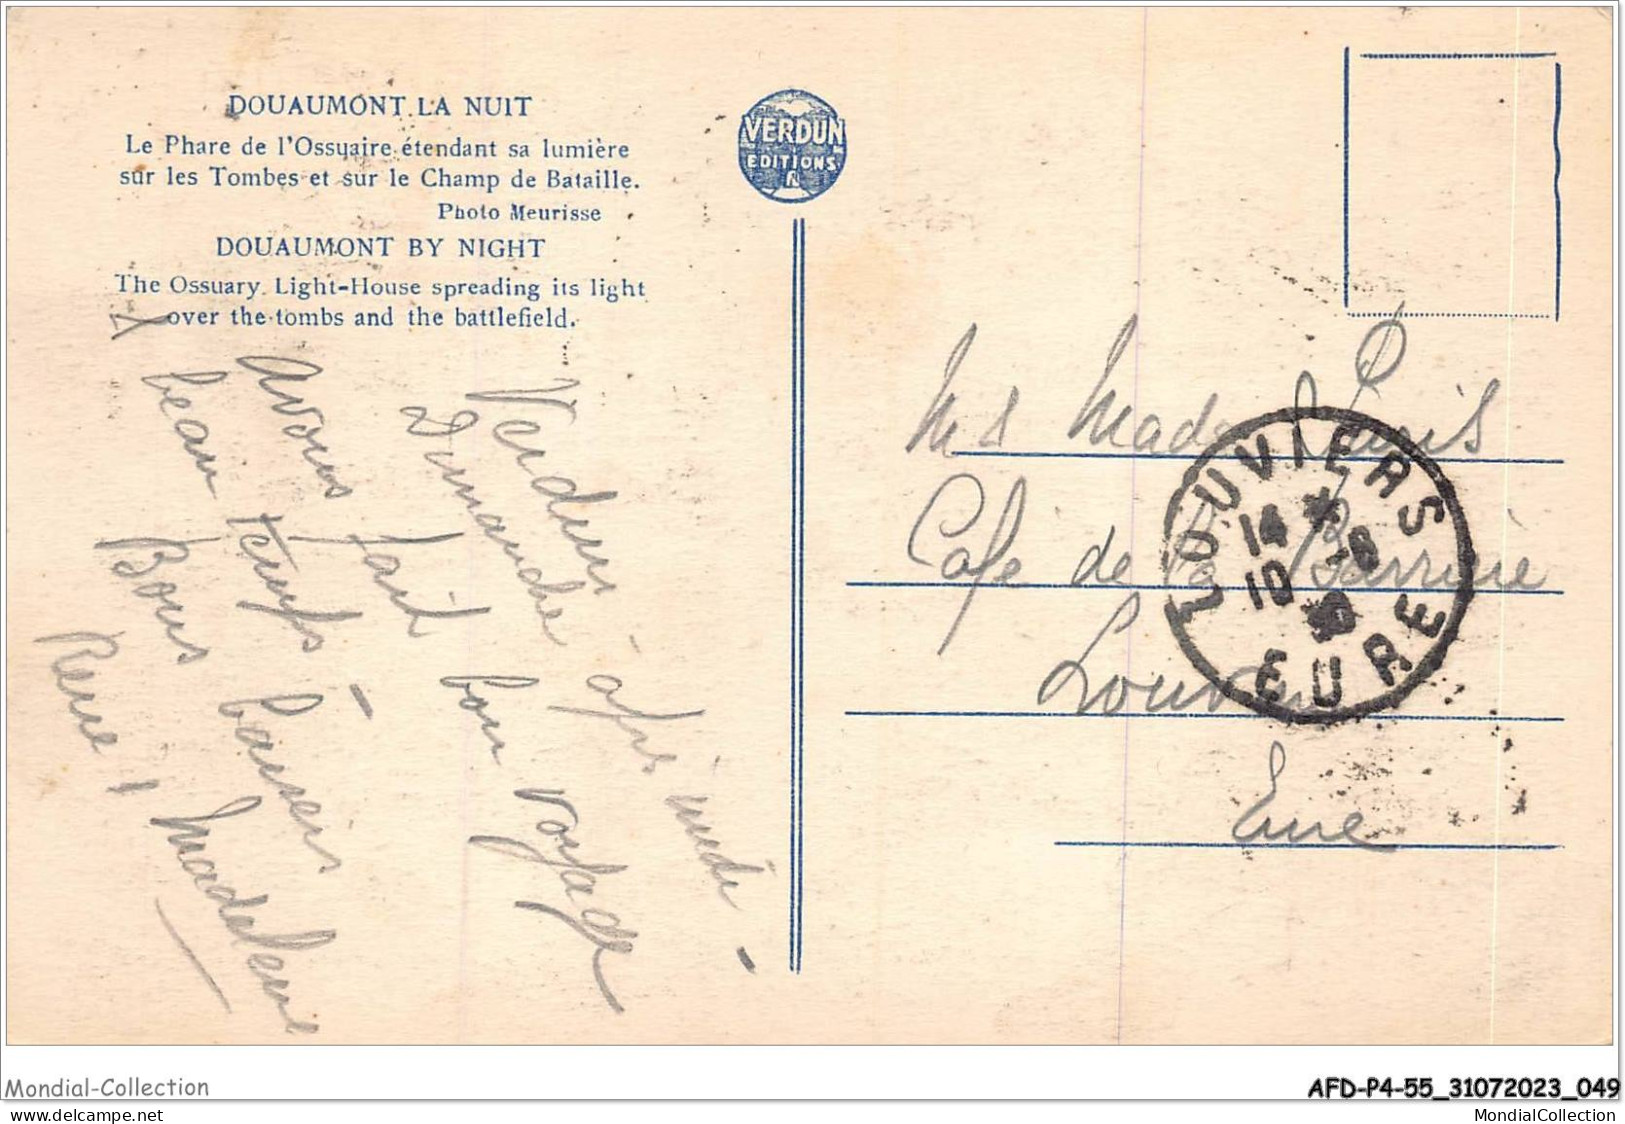 DOUAUMONT LA NUIT
Le Phare de l'Ossuaire étendant sa lumière
sur les Tombes et sur le Champ de Bataille.
Photo Meurisse
DOUAUMONT BY NIGHT
The Ossuary Light-House spreading its light
over the tombs and the battlefield.
Verdun
Dimanche après midi -
avons fait bon voyage
beau temps -
Bons baisers
René, Madeleine
VERDUN
EDITIONS
Café de la
Eure
LOUVIERS
14 * 18
10
EURE
Mondial-Collection
AFD-P4-55_31072023_049
my-delcampe.net
MondialCollection